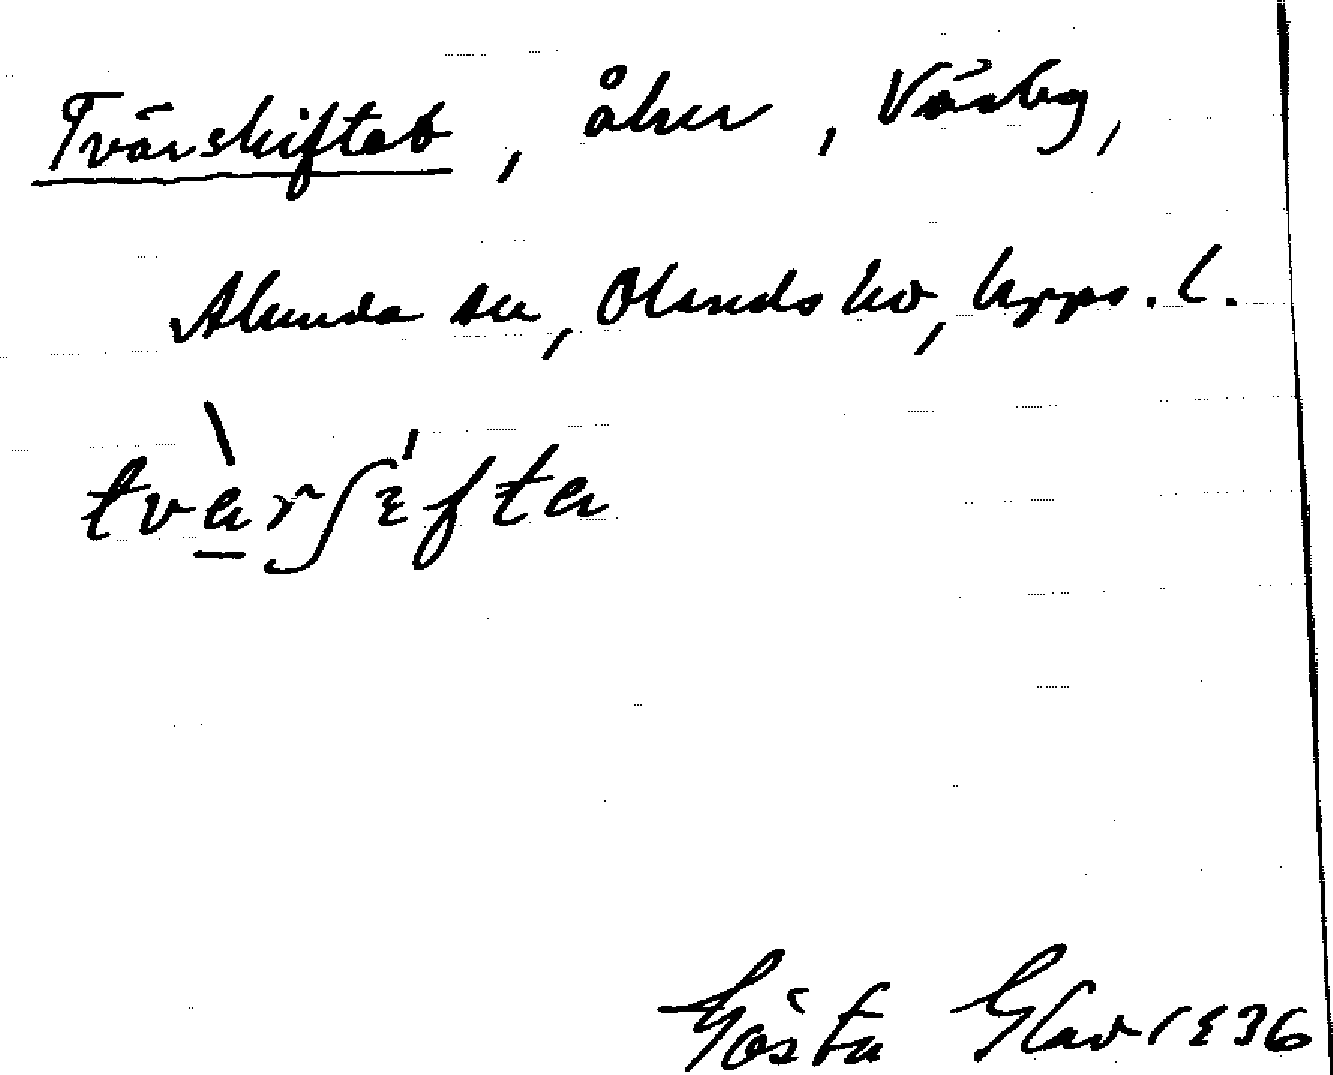 Tvärskiftet, åker, Väsby,
Alunda sn, Olands hd, Upps. l.
tvàrʃìfta
Gösta Glav 1936